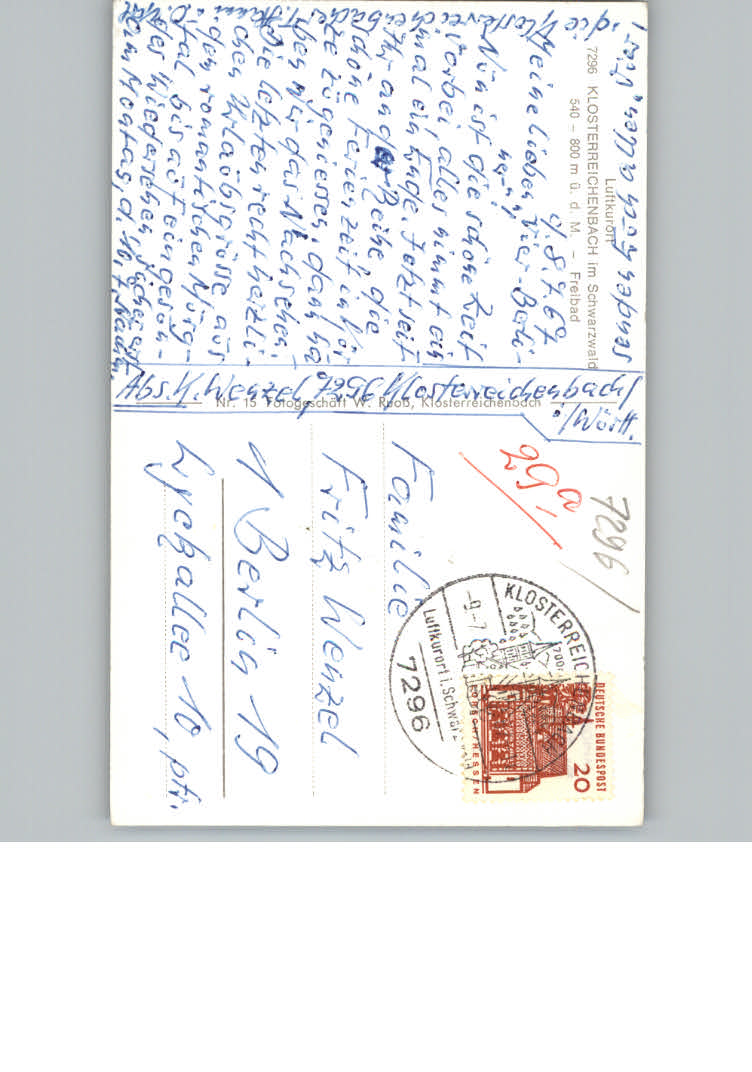 Luftkurort
7296 KLOSTERREICHENBACH im Schwarzwald
540 – 800 m ü. d. M. – Freibad
d. 8.7.67
Meine lieben vier Berli-
ner!
Nun ist die schöne Zeit
vorbei, alles nimmt ein-
mal ein Ende. Jetzt seit
Ihr an der Reihe die
schöne Ferienzeit in Kür-
ze zu geniessen, dann ha-
ben wir das Nachsehen.
Die letzten recht herzli-
chen Urlaubsgrüsse aus
den romantischen Murg-
tal bis auf ein geson-
des Wiedersehen
am Montag, d. 10.7.
senden Euch allen
die Klosterreichenbacher
Nr. 15 Fotogeschäft W. Ruob, Klosterreichenbach
29a
7296
Familie
Fritz Wenzel
1 Berlin 19
Lyckallee 10, ptr.
KLOSTERREICHENBACH
-9.-7
700
Luftkurort i. Schwarzwald
7296
DEUTSCHE BUNDESPOST
20
LORSCH/HESSEN